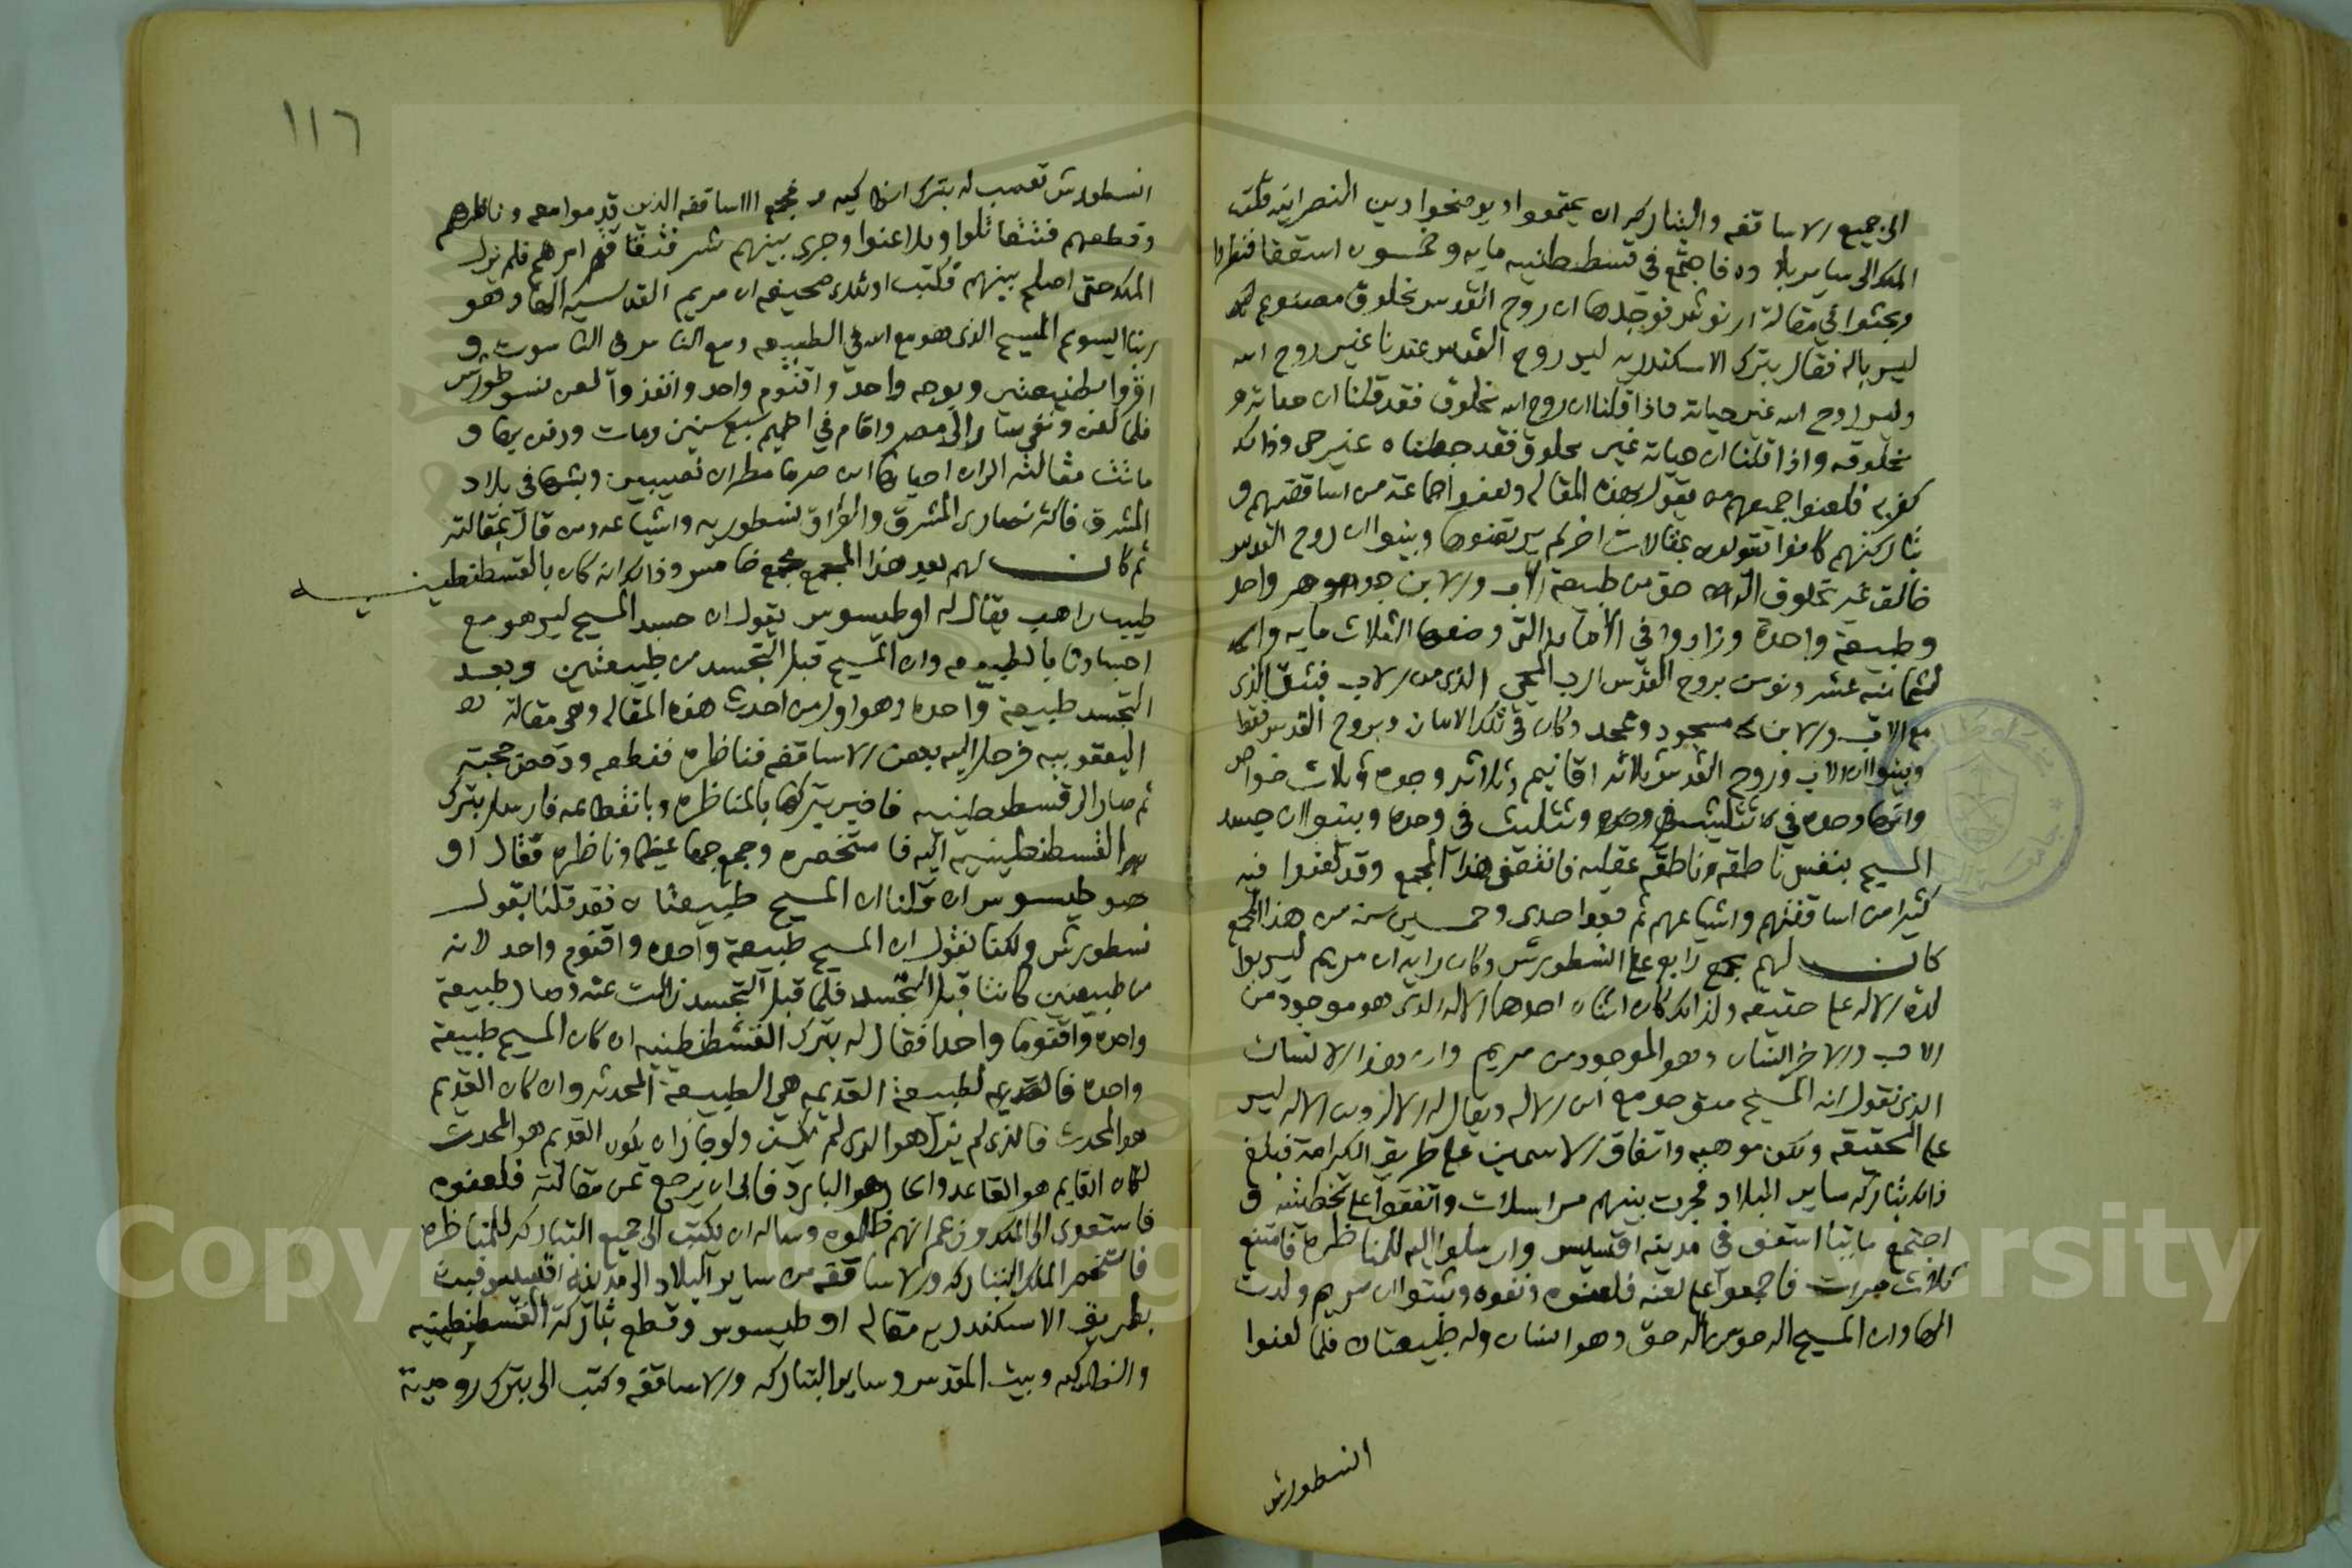 الى جميع الاساقفه والبتاركه ان يجتمعوا ويوضحوا دين النصرانيه فكتب
الملك الى ساير بلاده فاجتمع في قسطنطنيه مايه وخمسون اسقفا فنظروا
وبحثوا في مقالة اريوش فوجدها ان روح القدس مخلوق مصنوع
ليس باله فقال بترك الاسكندريه ليس روح القدس عندنا غير روح الله
وليس روح الله غير حياته فاذا قلنا ان روح الله مخلوق فقد قلنا ان حياته
مخلوقه واذا قلنا ان حياته غير مخلوق فقد جعلناه غير حي وذلك
كفر به فلعنوا جميعهم من يقول بهذه المقاله ولعنوا جماعة من اساقفتهم و
بتاركتهم كانوا يقولون بمقالات اخر لم يرتضوها وبينوا ان روح القدس
خالق غير مخلوق اله حق من طبيعة الاب والابن جوهر واحد
وطبيعة واحدة وزادوا في الامانه التي وضعها الثلاث مايه و
ثمانيه عشر ونومن بروح القدس الرب المحي الذي من الاب منبثق الذي
مع الاب والابن مسجود وممجد وكان في تلك الامانه وبروح القدس فقط
وبينوا ان الاب وروح القدس ثلاثه اقانيم وثلاثه وجوه وثلاث خواص
وانها وحده في تثليث وتثليث في وحده وبينوا ان جسد
المسيح بنفس ناطقه عقليه فانفض هذا المجمع وقد لعنوا فيه
كثيرا من اساقفتهم واشياعهم ثم بعد احدى وخمسين سنه من هذا المجمع
كان لهم مجمع رابع على النسطورس وكان رايه ان مريم ليس بوا
لدة الاله على حقيقه ولذلك كان اثنان احدهما الاله الذي هو موجود من
الاب والاخر انسان وهو الموجود من مريم وان هذا الانسان
الذي نقول انه المسيح متوحد مع ابن الاله ويقال له اله وابن الاله ليس
على الحقيقه ولكن موهبه واتفاق الاسمين على طريق الكرامة فبلغ
ذلك بتاركه ساير البلاد فجرت بينهم مراسلات واتفقوا على تخطئته و
اجتمع مايتا اسقف في مدينه افسيس وارسلوا اليه للمناظره فامتنع
ثلاث مرات فاجمعوا على لعنه فلعنوه ونفوه وثبتوا ان مريم ولدت
الها وان المسيح اله حق من اله حق وهو انسان وله طبيعتان فلما لعنوا
النسطورس
١١٦
النسطورس تعصب له بترك انطاكيه فجمع الاساقفه الذين قدموا معه وناظرهم
وقطعهم فتقاتلوا وتلاعنوا وجرى بينهم شر فتفاقم امرهم فلم يزل
الملك حتى اصلح بينهم فكتب اولئك صحيفه ان مريم القديسه ولدت الها وهو
ربنا ايسوع المسيح الذي هو مع الله في الطبيعه ومع الناس في الناسوت و
اقروا بطبيعتين وبوجه واحد واقنوم واحد وانفذوا لعن نسطورس
فلما لعن ونفي سار الى مصر واقام في اخميم سبع سنين ومات ودفن بها و
ماتت مقالته الى ان احياها ابن صرما مطران نصيبين وبثها في بلاد
المشرق فاكثر نصارى المشرق والعراق نسطوريه
ثم كان لهم بعد هذا المجمع مجمع خامس وذلك انه كان بالقسطنطينيه
طبيب راهب يقال له اوطيسوس يقول ان جسد المسيح ليس هو مع
اجسادنا بالطبيعه وان المسيح قبل التجسد من طبيعتين وبعد
التجسد طبيعة واحده وهو اول من احدث هذه المقاله وهي مقالة
اليعقوبيه فرحل اليه بعض الاساقفه فناظره فقطعه ودحض حجته
ثم صار الى قسطنطينيه فاخبر بتركها بالمناظره وبانقطاعه فارسل بترك
القسطنطينيه اليه فاستحضره وجمع جمعا عظيما وناظره فقال او
طيسوس ان قلنا ان المسيح طبيعتان فقد قلنا بقول
نسطورس ولكنا نقول ان المسيح طبيعة واحده واقنوم واحد لانه
من طبيعتين كانتا قبل التجسد فلما قبل التجسد زالت عنه وصار طبيعة
واحده واقنوما واحدا فقال له بترك القسطنطنيه ان كان المسيح طبيعة
واحده فالطبيعة القديمه هي الطبيعة المحدثه وان كان القديم
هو المحدث فالذي لم يزل هو الذي لم يكن ولو جاز ان يكون القديم هو المحدث
لكان القايم هو القاعد والحار هو البارد فابى ان يرجع عن مقالته فلعنوه
فاستعدى الى الملك وزعم انهم ظلموه وساله ان يكتب الى جميع البتاركه للمناظره
فاستحضر الملك البتاركه والاساقفه من ساير البلاد الى مدينه افسيس فثبت
بطريق الاسكندريه مقاله اوطيسوس وقطع بتاركة القسطنطينيه
وانطاكيه وبيت المقدس وساير البتاركه والاساقفه وكتب الى بترك روميه